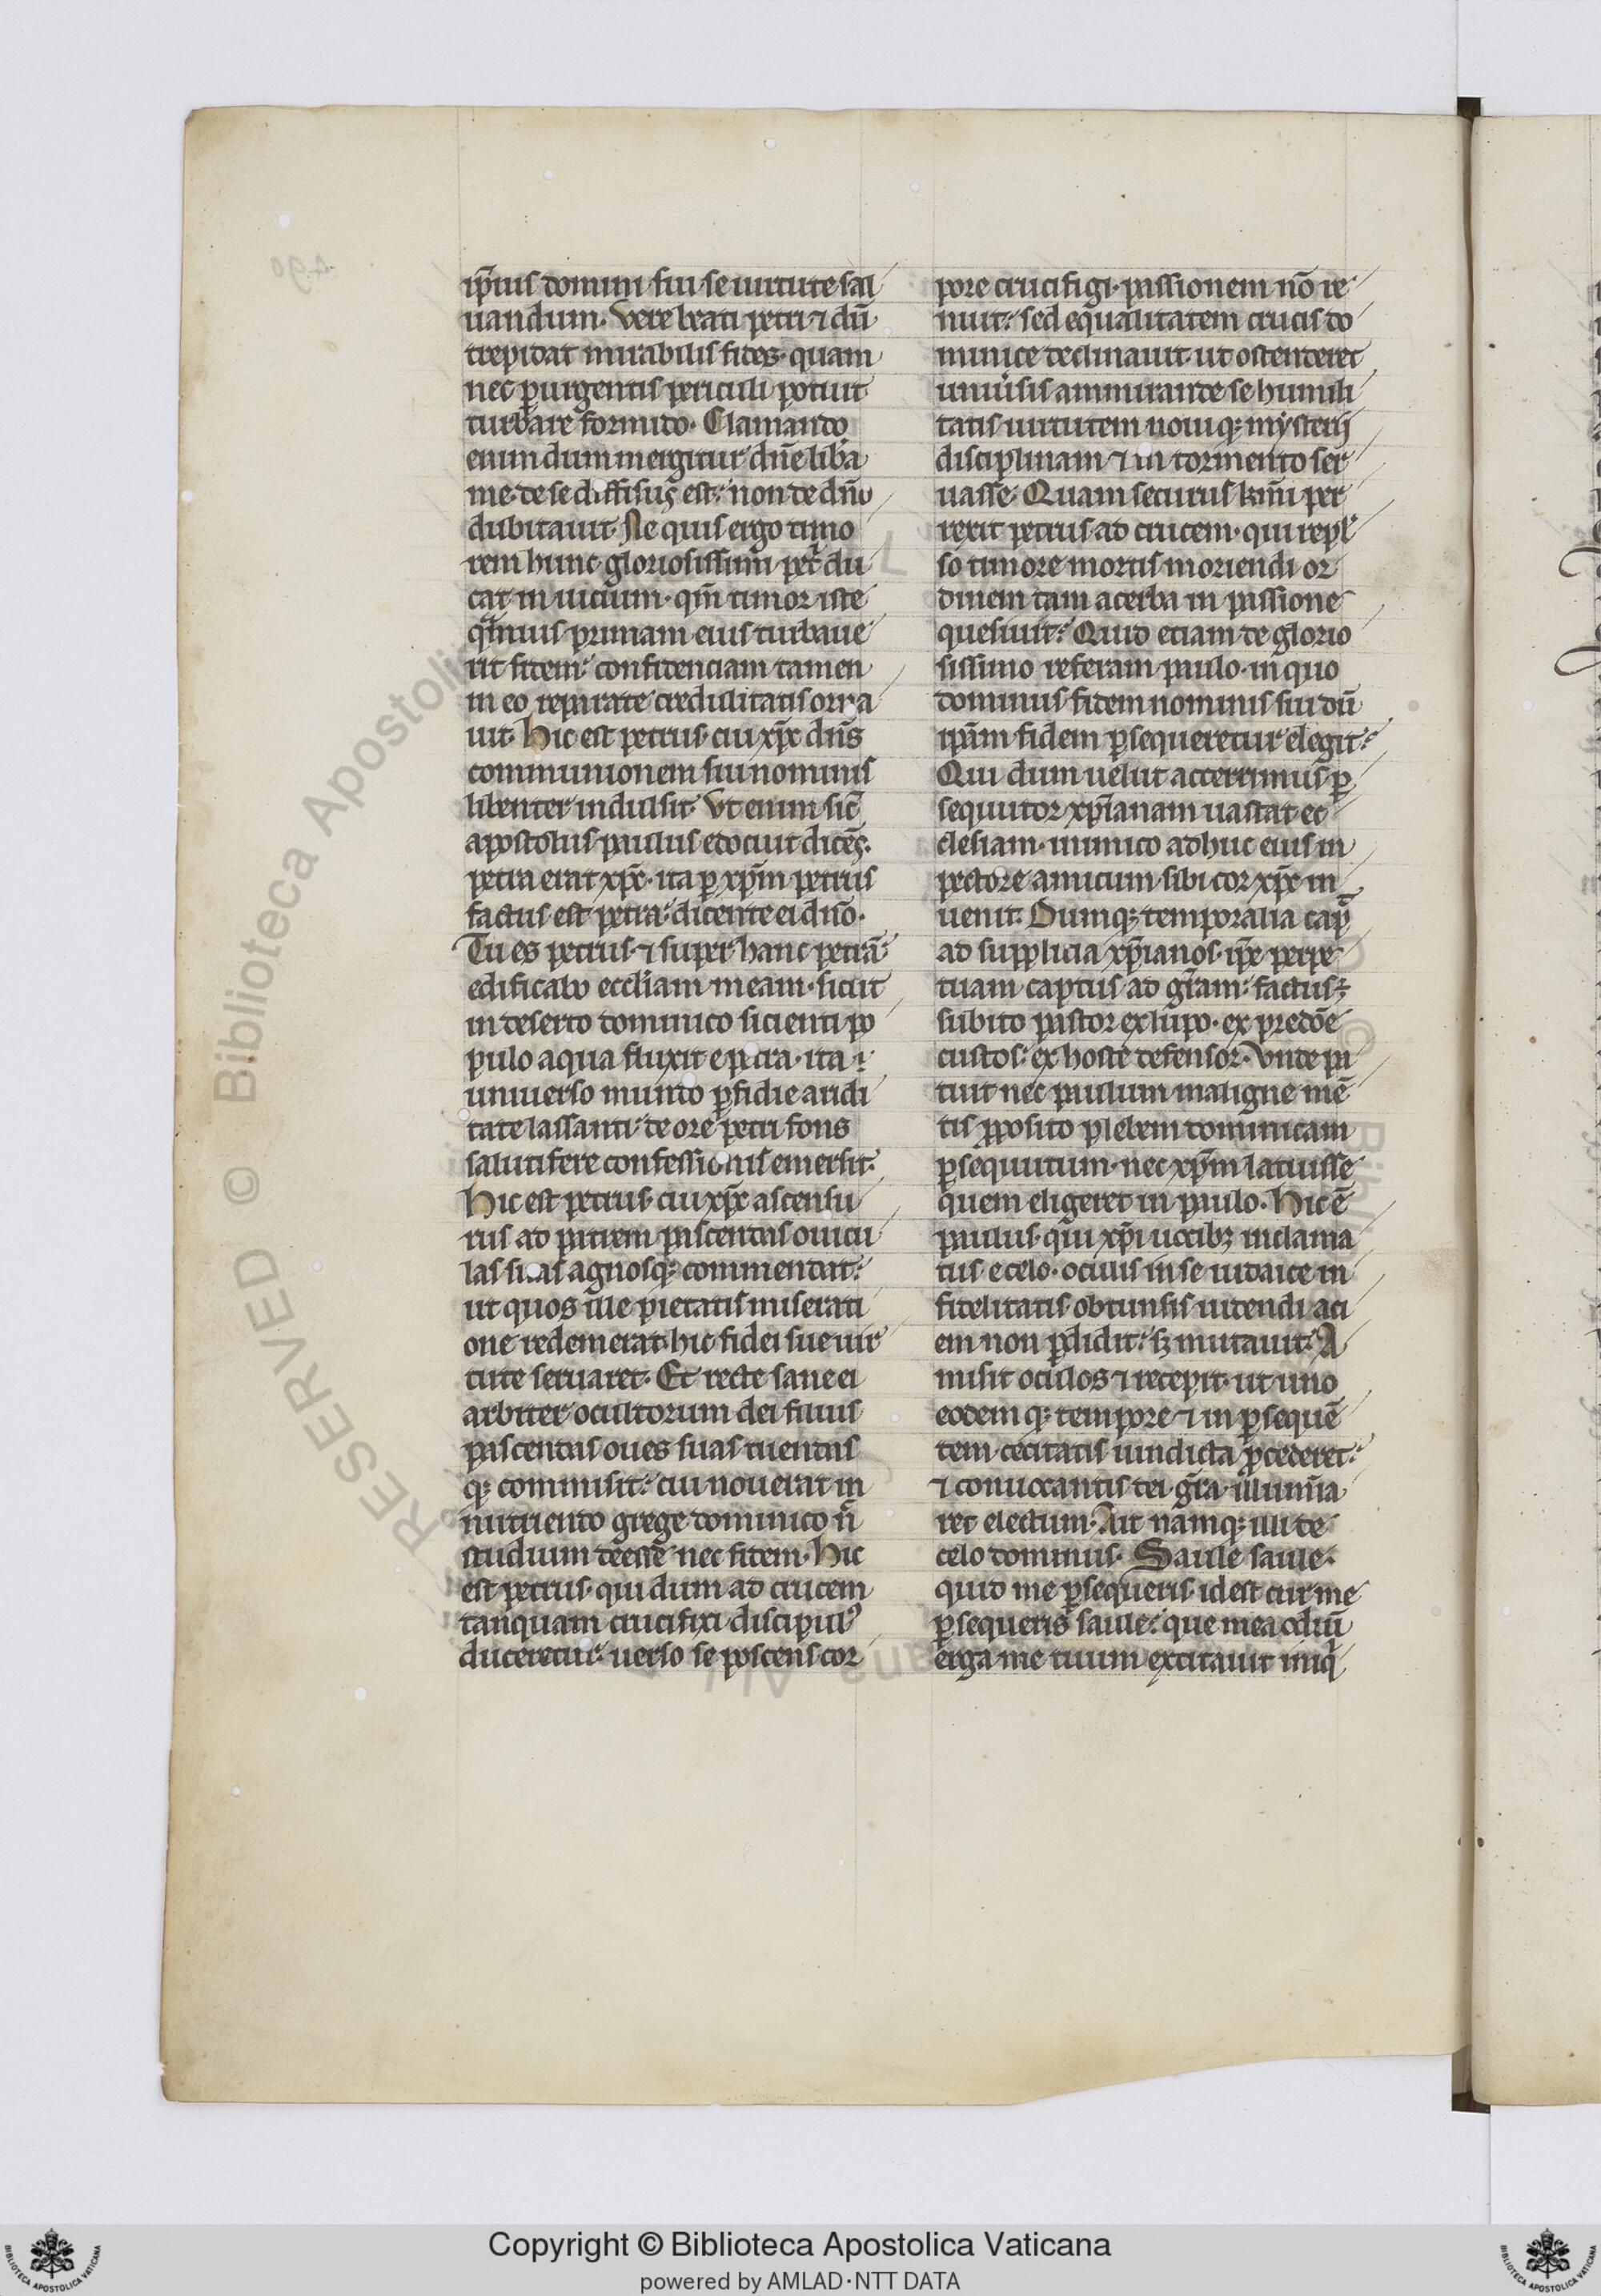 ip̄ius domini sui se uirtute sal
uandum. Vere beati petri ⁊ dū
trepidat mirabilis fides. quam
nec ꝑurgentis periculi potuit
turbare formido. Clamando
enim dum mergitur dn̄e liba
me. de se diffisus est: non de dn̄o
dubitauit. Ne quis ergo timo
rem hunc gloriosissimi petri du
cat in uicium. qm̄ timor iste
qͣmuis primam eius turbaue
rit fidem: confidenciam tamen
in eo reparate credulitatis orna
uit. Hic est petrus. cui xp̄c dn̄s
communionem sui nominis
libenter indulsit. Vt enim sic̄
apostolus paulus edocuit dicēs.
petra erat xp̄c. ita ꝑ xp̄m petrus
factus est petra: dicente ei dn̄o.
Tu es petrus. ⁊ super hanc petrā
edificabo eccl̄iam meam. sicut
in deserto dominico sicienti po
pulo aqua fluxit e petra. ita ⁊
uniuerso mundo ꝑfidie aridi
tate lassanti. de ore petri fons
salutifere confessionis emersit.
Hic est petrus. cui xp̄c ascensu
rus ad patrem pascendas ouicu
las suas agnosqꝫ commendat:
ut quos ille pietatis miserati
one redemerat. hic fidei sue uir
tute seruaret. Et recte sane ei
arbiter ocultorum dei filius
pascendas oues suas tuendas
qꝫ commisit: cui nouerat in
nutriendo grege dominico n̄
studium deesse nec fidem. Hic
est petrus. qui dum ad crucem
tanquam crucifixi discipulꝰ
duceretur: uerso se poscens cor
pore crucifigi. passionem nō re
nuit: sed equalitatem crucis do
minice declinauit ut ostenderet
uniūsis ammirande se humili
tatis uirtutem nouiqꝫ mysterij
disciplinam ⁊ in tormento ser
uasse. Quam securus km̄i per
rexit petrus ad crucem. qui repl
so timore mortis moriendi or
dinem tam acerba in passione
quesiuit: Quid etiam de glorio
sissimo referam paulo. in quo
dominus fidem nominis sui dū
ip̄am fidem ꝑsequeretur elegit:
Qui dum uelut accerrimus ꝑ
sequutor xp̄ianam uastat ec
clesiam. inimico adhuc eius in
pectore amicum sibi cor xp̄c in
uenit. Dumqꝫ temporalia cap̄
ad supplicia xp̄ianos. ip̄e perpe
tuam captus ad gl̄am: factus ꝫ
subito pastor ex lupo. ex predōe
custos: ex hoste defensor. Vnde pa
tuit nec paulum maligne mē
tis ꝓposito plebem dominicam
ꝑsequutum. nec xp̄m latuisse
quem eligeret in paulo. Hic ē
paulus. qui xp̄i uocibꝫ inclama
tus e celo. oculis in se iudaice in
fidelitatis obtunsis uidendi aci
em non ꝑdidit: sꝫ mutauit. A
misit oculos ⁊ recepit. ut uno
eodem qꝫ tempore ⁊ in ꝑsequē
tem cecitatis uindicta ꝓcederet:
⁊ conuocantis dei gr̄a illumīa
ret electum. Ait namqꝫ illi de
celo dominus. Saule saule.
quid me ꝑsequeris. id est cur me
ꝑsequeris saule: que mea odiū
erga me tuum excitauit iniq
Copyright © Biblioteca Apostolica Vaticana
powered by AMLAD·NTT DATA